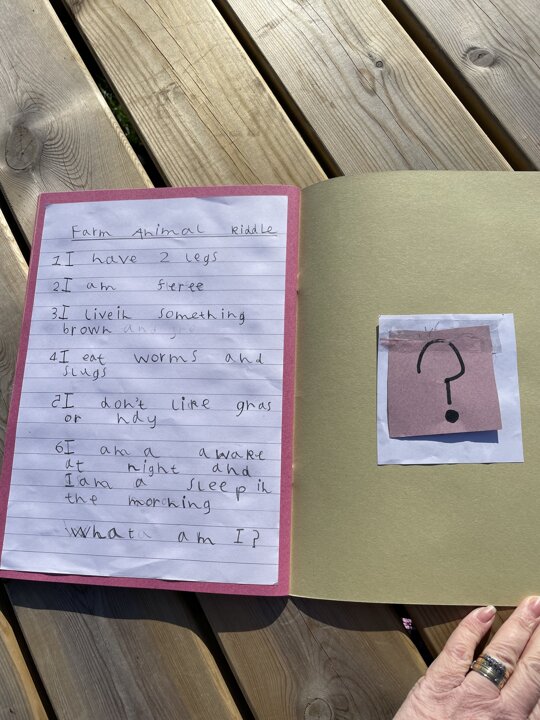 Farm Animal Riddle
1 I have 2 legs
2 I am fieree
3 I livein something
brown and
4 I eat worms and
slugs
5 I don't like gras
or hay
6 I am a awake
at night and
I am a sleep in
the morning
What am I?
?